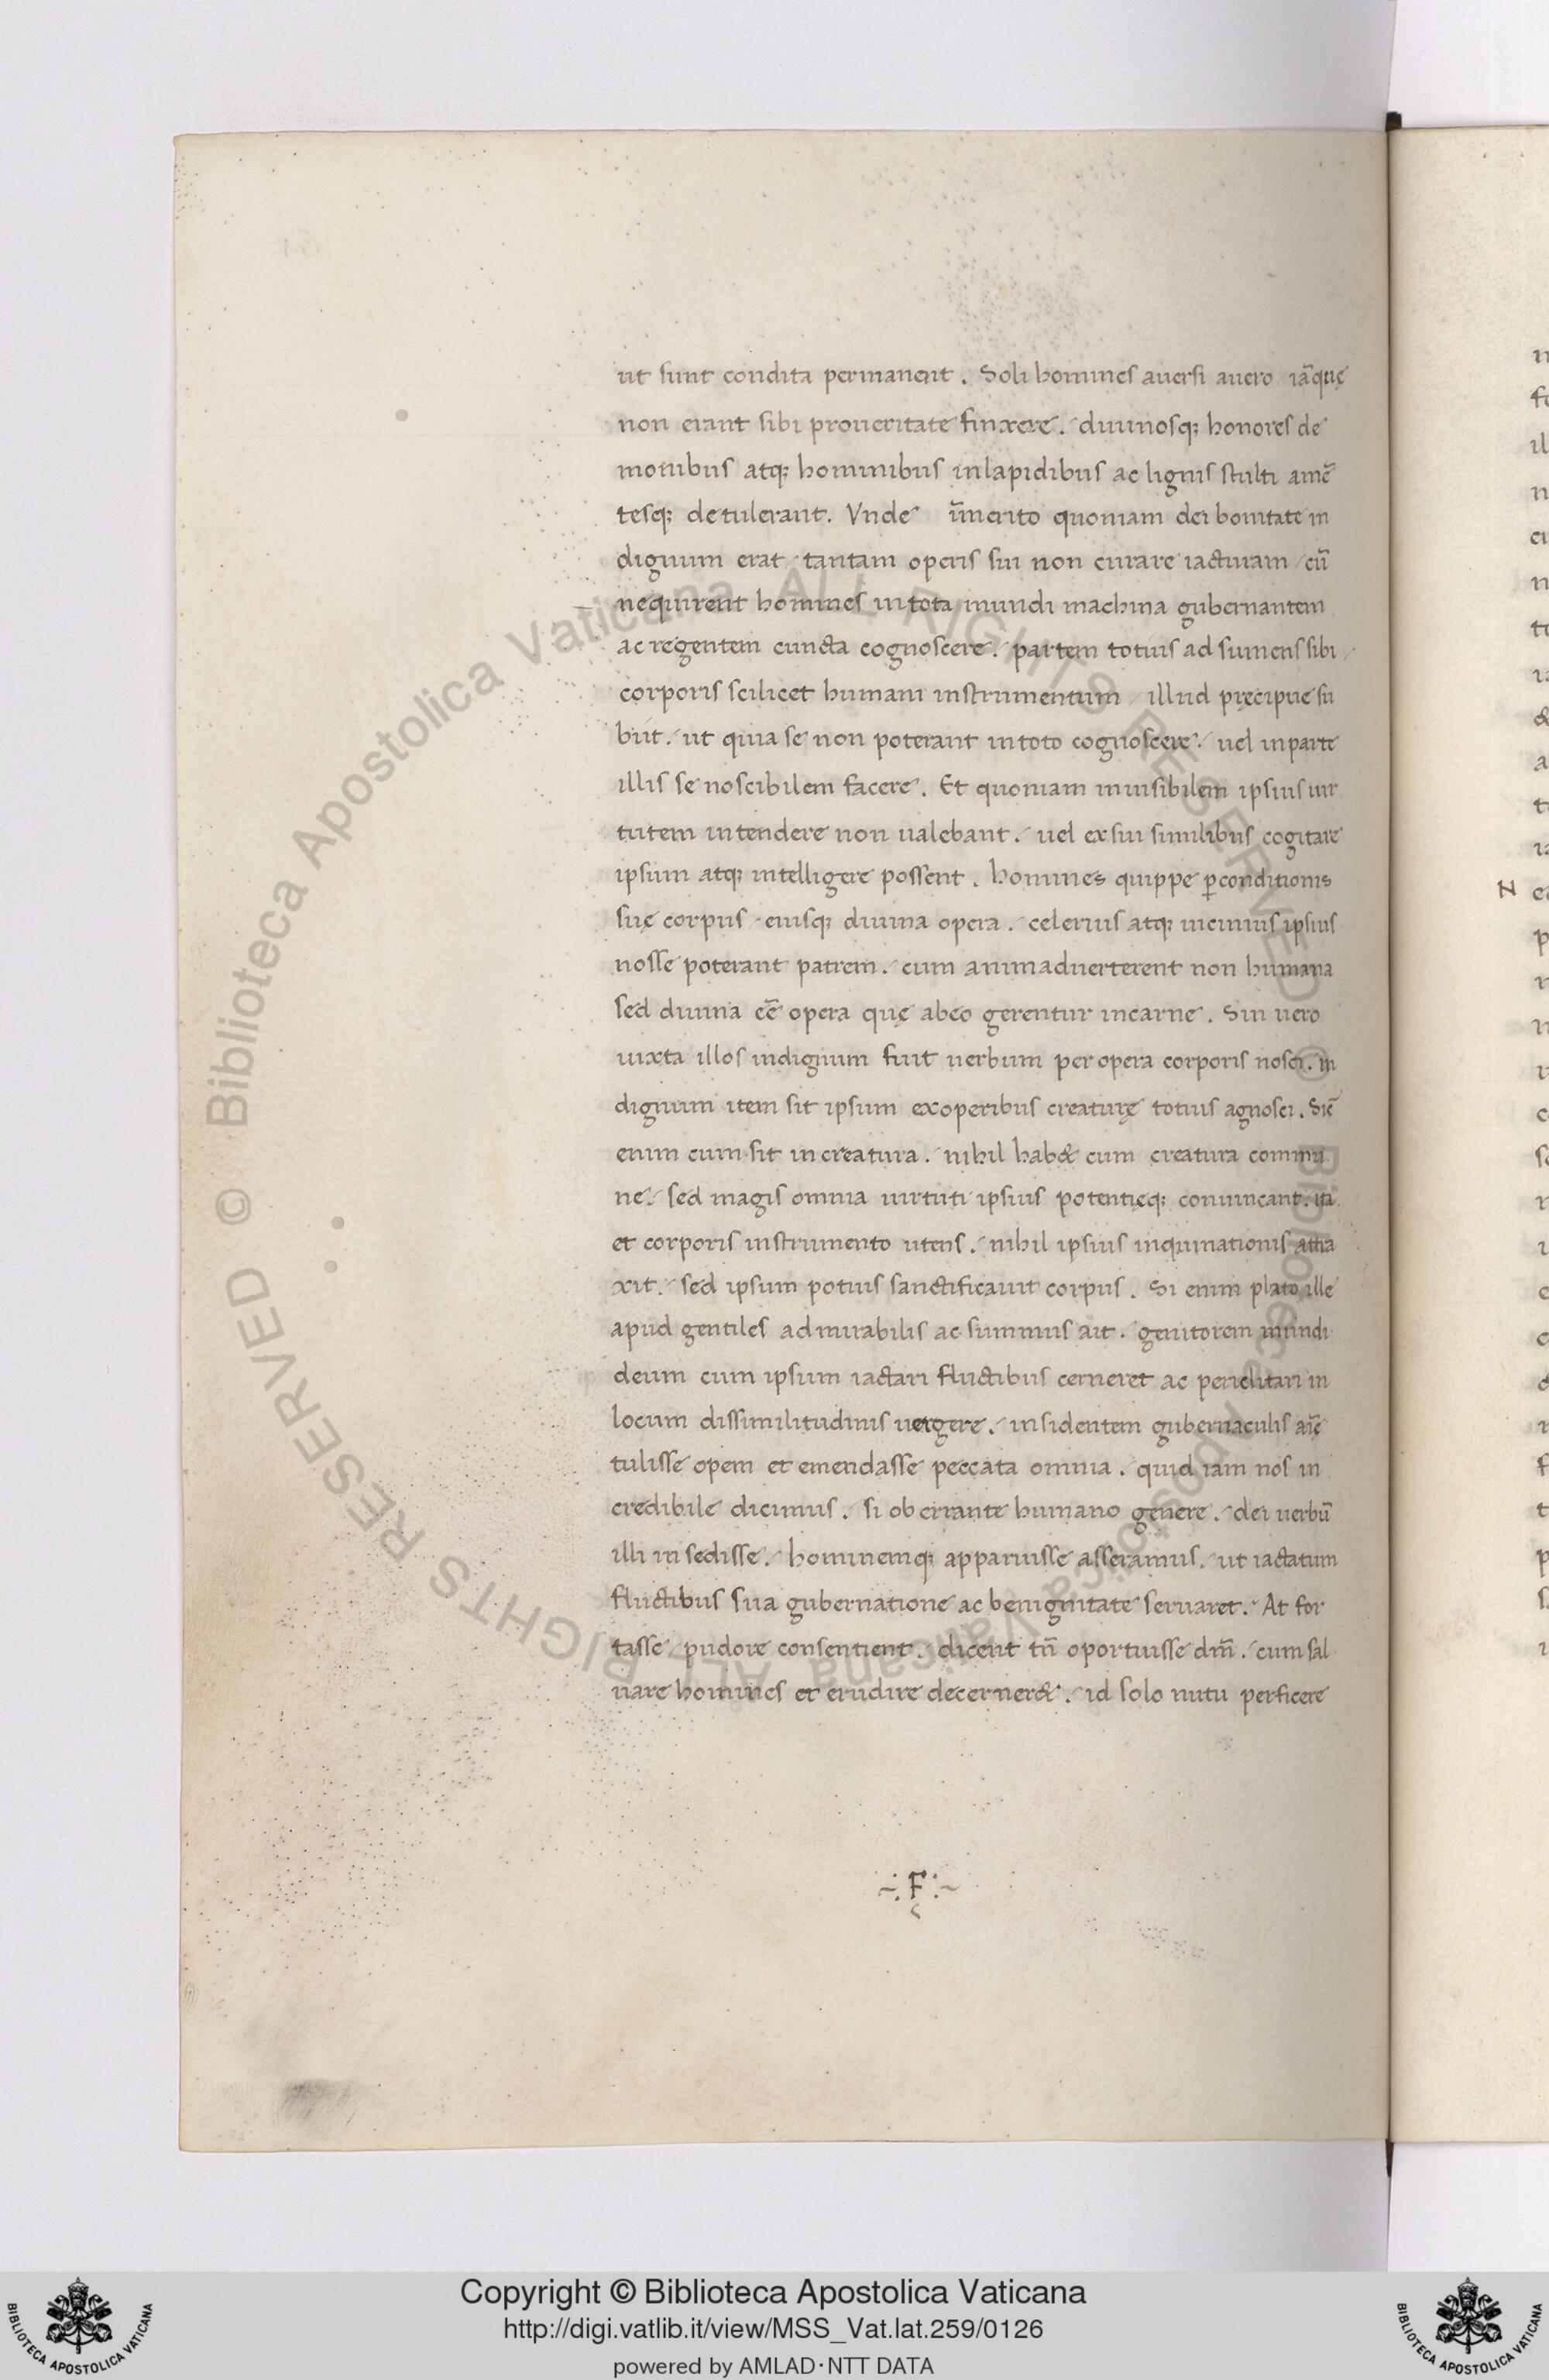 ut sunt condita permanent. Soli homines aversi auero iāquę
non erant sibi proueritate finxere. diuinosq; honores de
monibus atq; hominibus inlapidibus ac lignis stulti amē
tesq; detulerant. Vnde īmerito quoniam dei bonitate in
dignum erat tantam operis sui non curare iacturam cū
nequirent homines intota mundi machina gubernantem
ac regentem cuncta cognoscere. partem totius ad sumens sibi
corporis scilicet humani instrumentum illud pręcipue su
biit. ut quia se non poterant intoto cognoscere. uel inparte
illis se noscibilem facere. Et quoniam inuisibilem ipsius uir
tutem intendere non ualebant. uel ex sui similibus cogitare
ipsum atq; intelligere possent. homines quippe ꝑconditionis
suę corpus eiusq; diuina opera. celerius atq; uicinius ipsius
nosse poterant patrem. cum animaduerterent non humana
sed diuina eē opera quę abeo gerentur incarne. Sin uero
iuxta illos indignum fuit uerbum per opera corporis nosci. in
dignum item sit ipsum exoperibus creaturę totius agnosci. Sic
enim cum sit in creatura. nihil hab& cum creatura commu
ne. sed magis omnia uirtuti ipsius potentięq; conuincant. ita
et corporis instrumento utens. nihil ipsius inquinationis attra
xit. sed ipsum potius sanctificauit corpus. Si enim plato ille
apud gentiles admirabilis ac summus ait. genitorem mundi
deum cum ipsum iactari fluctibus cerneret ac periclitari in
locum dissimilitudinis uergere. insidentem gubernaculis aīę
tulisse opem et emendasse peccata omnia. quid iam nos in
credibile dicimus. si ob errante humano genere. dei uerbū
illi insedisse. hominemq; apparuisse asseramus. ut iactatum
fluctibus sua gubernatione ac benignitate seruaret. At for
tasse pudore consentient. dicent tn̄ oportuisse dm̄. cum sal
uare homines et erudire decerner&. id solo nutu perficere
F
N
Copyright © Biblioteca Apostolica Vaticana
http://digi.vatlib.it/view/MSS_Vat.lat.259/0126
powered by AMLAD·NTT DATA
BIBLIOTECA APOSTOLICA VATICANA
BIBLIOTECA APOSTOLICA VATICANA
© Biblioteca Apostolica Vaticana ALL RIGHTS RESERVED © Biblioteca Apostolica Vaticana ALL RIGHTS RESERVED